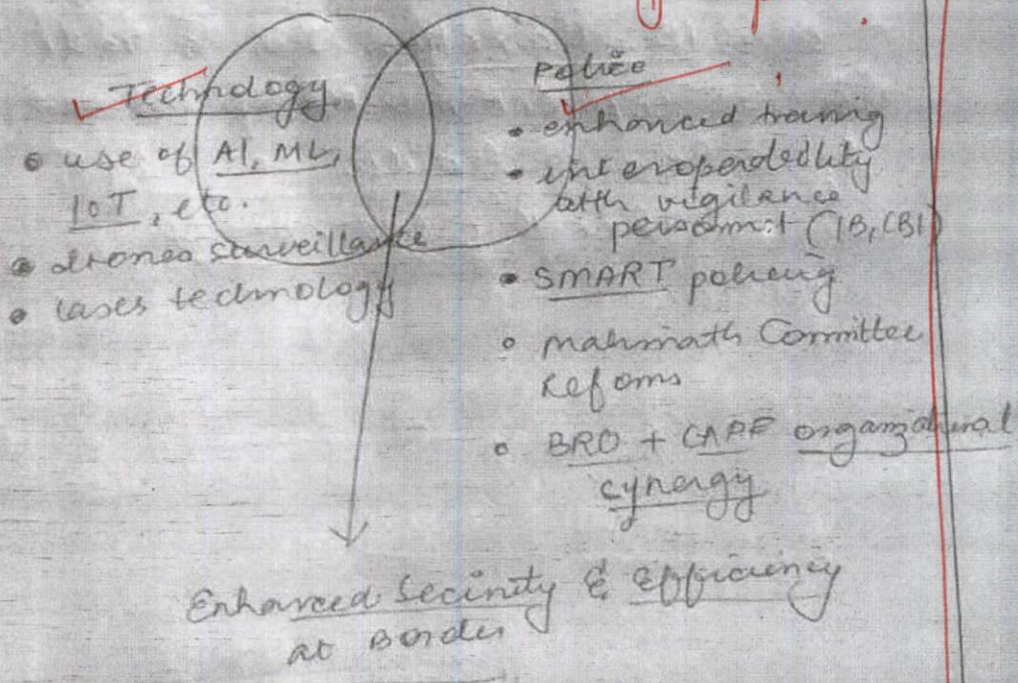 Technology
• use of AI, ML,
IOT, etc.
• drones surveillance
• lases technology
Police
• enhanced traning
• interoperdedlity
with vigilance
(IB, CBI)
• SMART policing
• Malimath Committee
Refoms
• BRO + CAPF organizational
cynergy
Enhanced Security & Efficiency
at Border